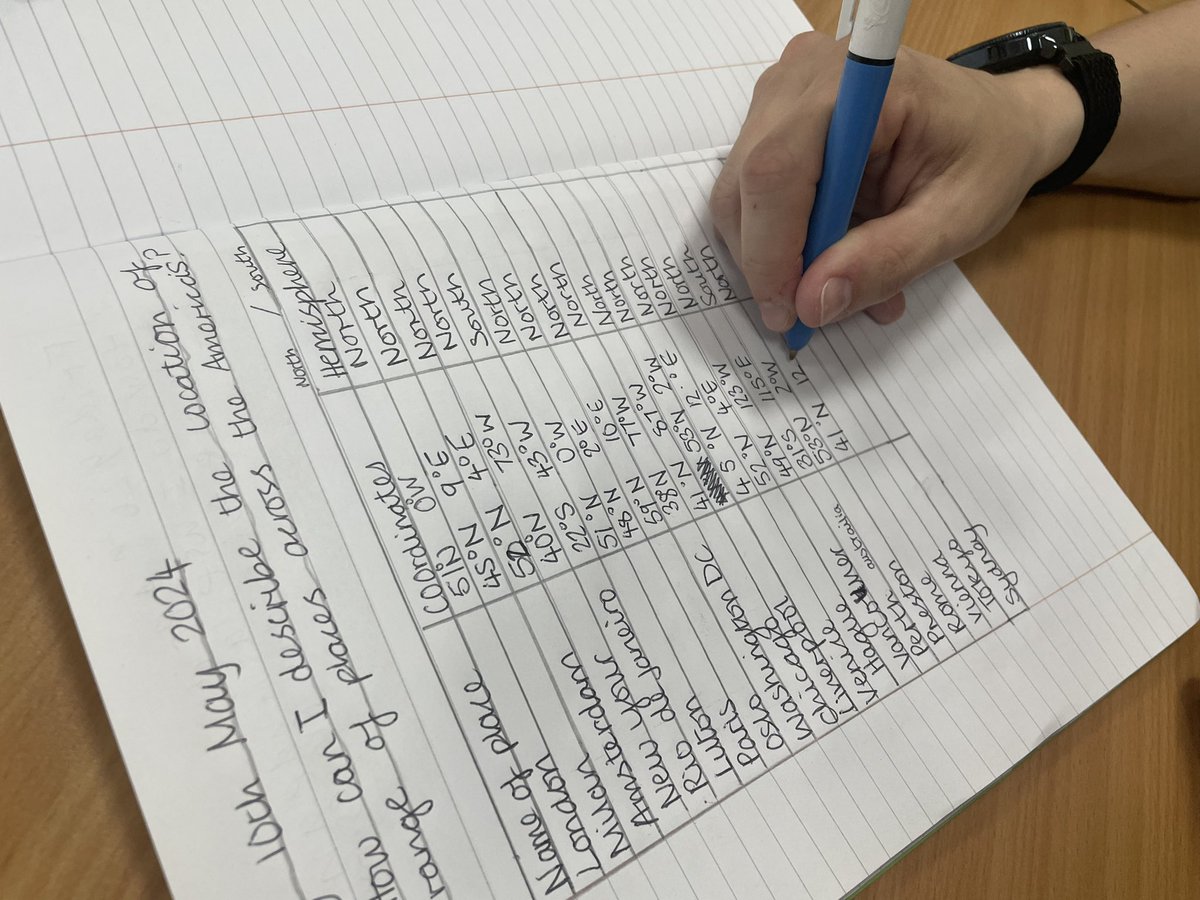 10th May 2024
How can I describe the location of
range of places across the Americas?
North / South
Name of place Coordinates Hemisphere
London 51°N 0°W North
Milan 45°N 9°E North
Amsterdam 52°N 4°E North
New York 40°N 73°W North
Rio de Janeiro 22°S 43°W South
Luton 51°N 0°W North
Paris 48°N 2°E North
Oslo 59°N 10°E North
Washington DC 38°N 77°W North
Chicago 41°N 87°W North
Liverpool 53°N 2°W North
Venice 45°N 12°E North
Hague 52°N 4°E North
Vancouver 49°N 123°W North
Perth australia 31°S 115°E South
Preston 53°N 2°W North
Rome 41°N 12
Vienna
Tokyo
Sydney